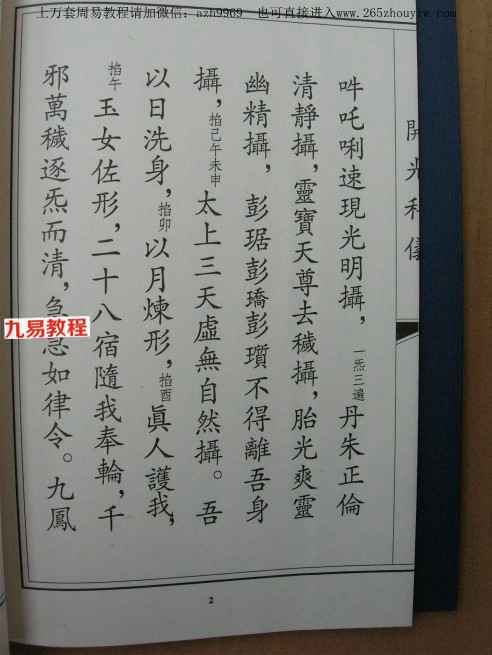 上万套周易教程请加微信：azh9969 也可直接进入www.265zhouyiw.com
開光科儀
吽吒唎速現光明攝，一炁三遍丹朱正倫
清靜攝，靈寶天尊去穢攝，胎光爽靈
幽精攝，彭琚彭璚彭瓆不得離吾身
攝，掐己午未申太上三天虛無自然攝。吾
以日洗身，掐卯以月煉形，掐酉眞人護我，
掐午玉女佐形，二十八宿隨我奉輪，千
邪萬穢逐炁而清，急急如律令。九鳳
九易教程
2